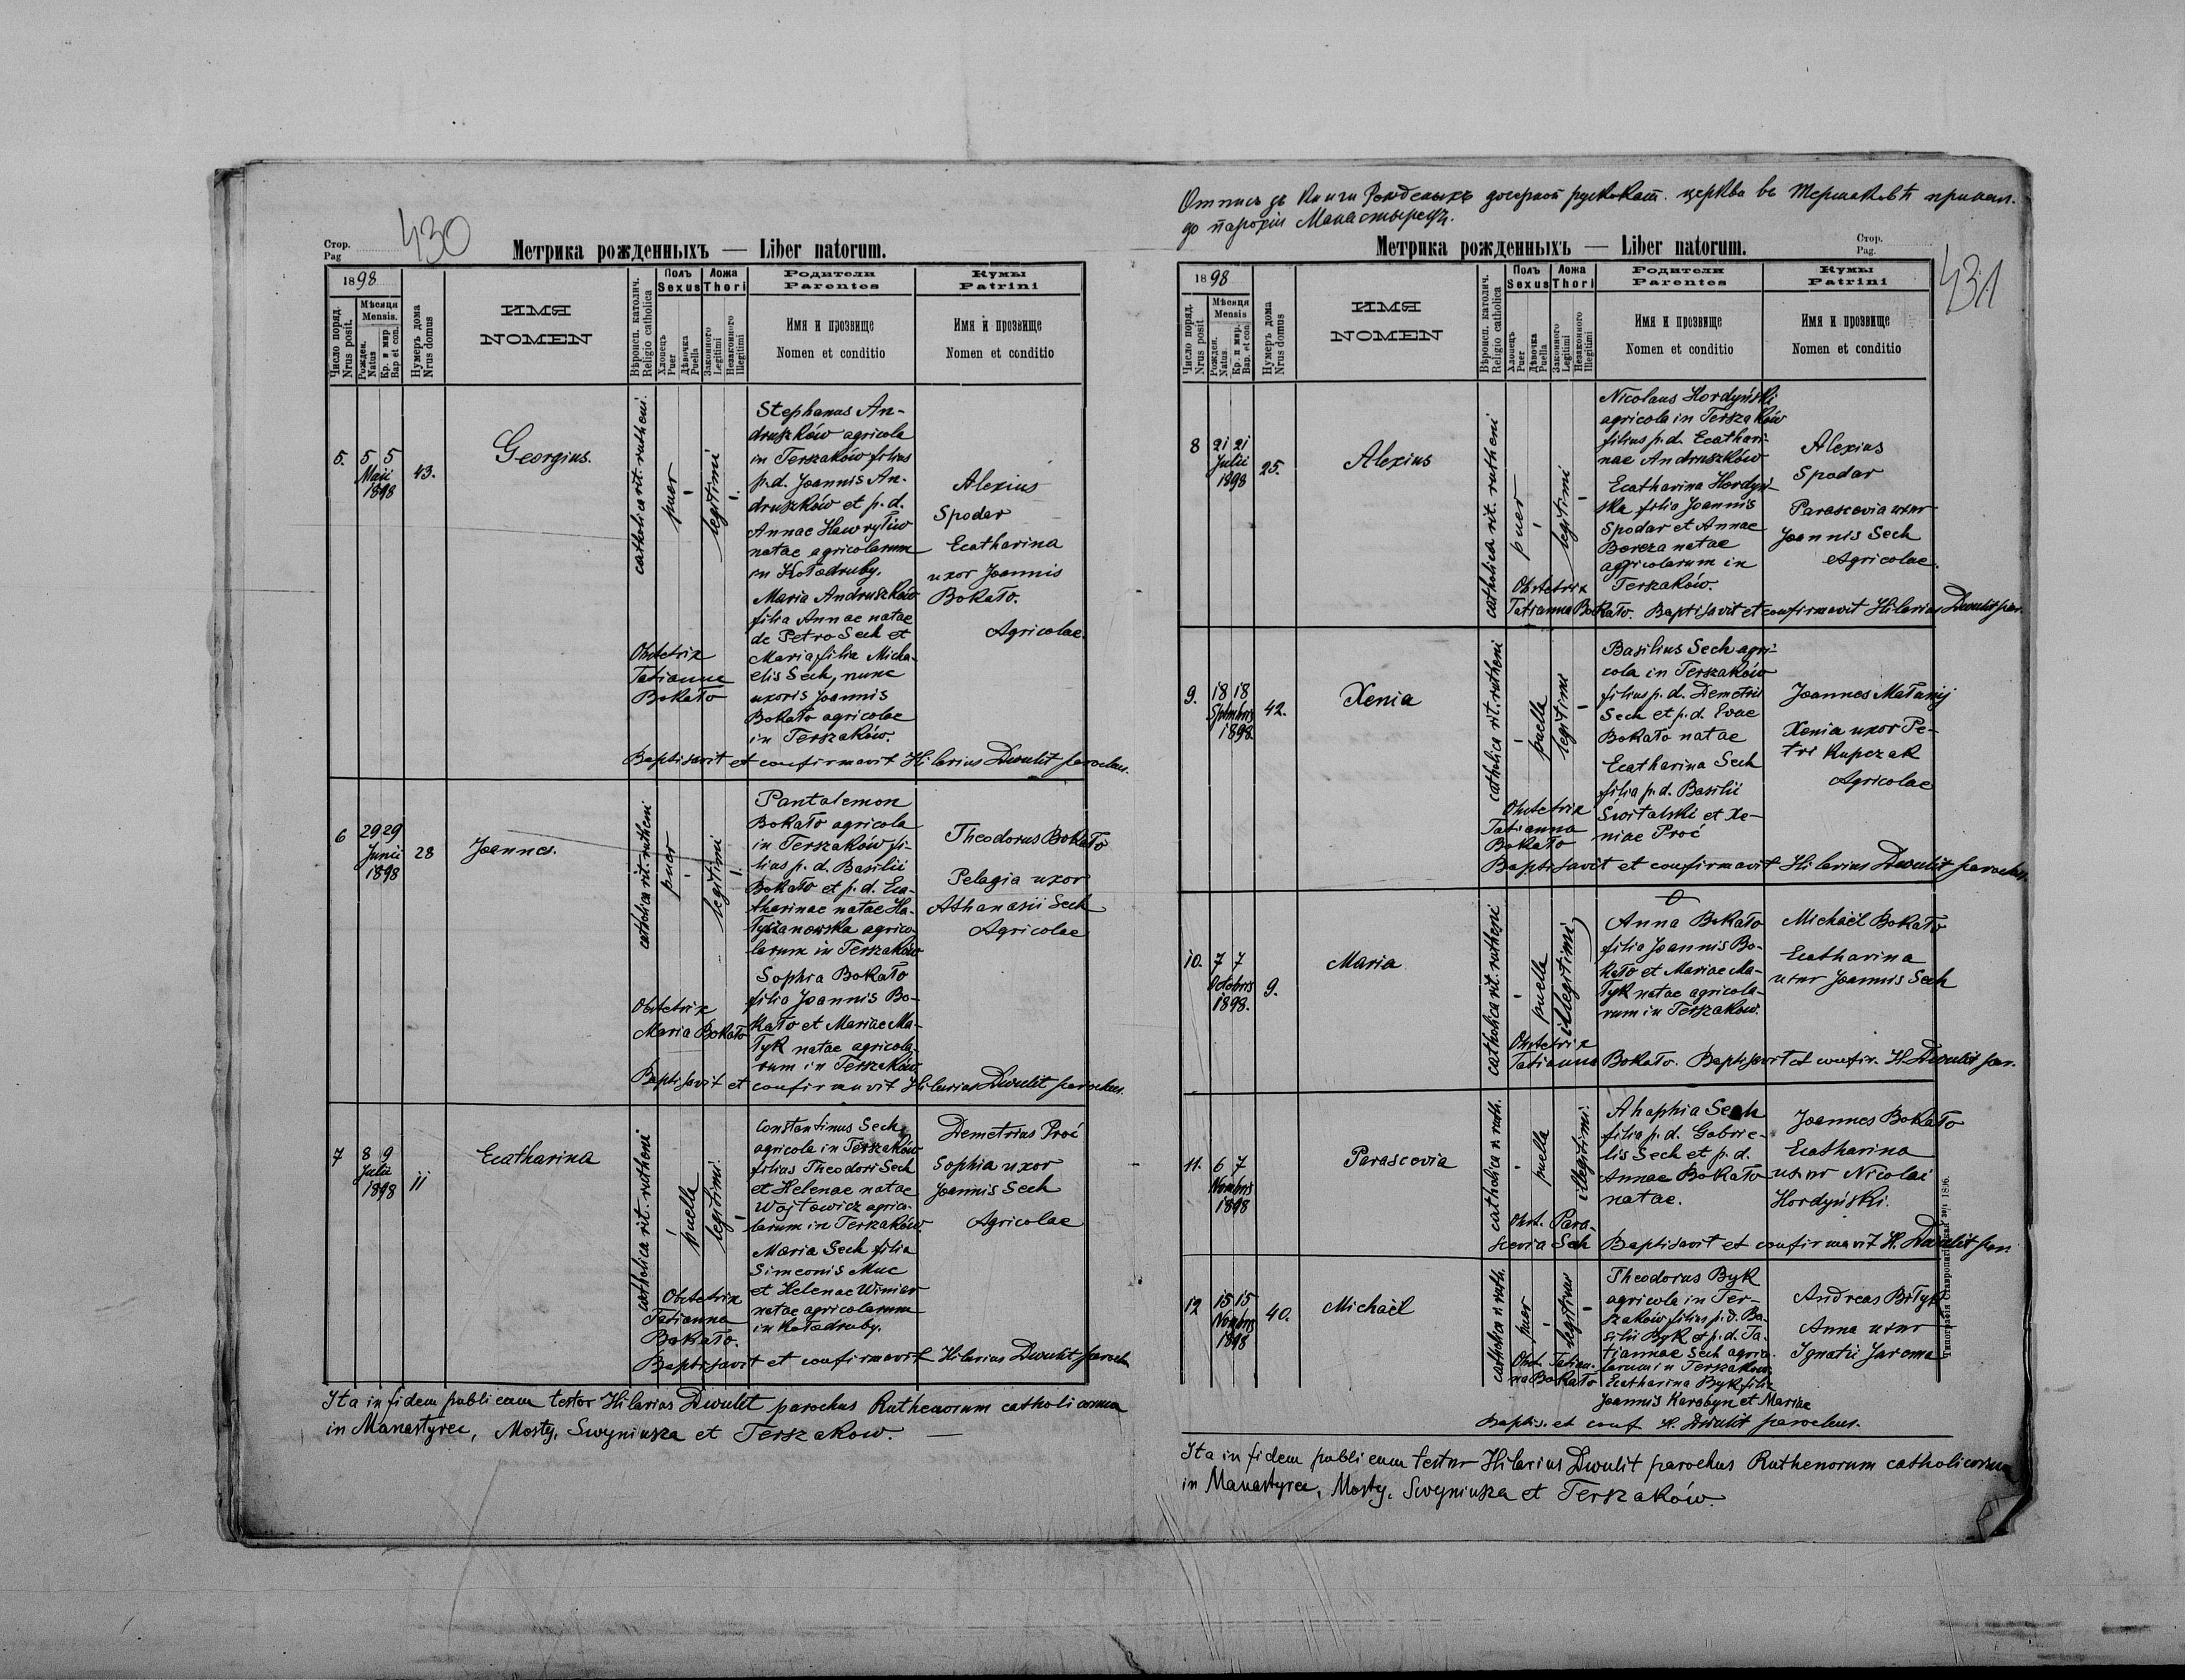 430
Стор.
Pag
Метрика рожденныхъ — Liber natorum.
1898
Число поряд.
Nrus posit.
Мѣсяця
Mensis.
Рожден.
Natus
Кр. и мир
Bap et con.
Нумеръ дома
Nrus domus
ИМЯ
NOMEN
Вѣроисп. католич.
Religio catholica
Полъ
Sexus
Хлопецъ
Puer
Дѣвочка
Puella
Ложа
Thori
Законного
Legitimi
Незаконного
Illegitimi
Родители
Parentes
Имя и прозвище
Nomen et conditio
Кумы
Patrini
Имя и прозвище
Nomen et conditio
5.
5 5
Maii
1898
43.
Georgius.
catholica rit. rutheni.
puer
legitimi
Stephanus An-
druszków agricola
in Terszaków filius
p.d. Joannis An-
druszków et p.d.
Annae Hawryliw
natae agricolarum
in Kołodruby.
Maria Andruszków
filia Annae natae
de Petro Sech et
Maria filia Micha-
elis Sech, nunc
uxoris Joannis
Bokało agricolae
in Terszaków.
Alexius
Spodar
Ecatharina
uxor Joannis
Bokało.
Agricolae.
Obstetrix
Tatianna
Bokało
Baptisavit et confirmavit Hilarius Dwulit parochus.
6
29 29
Junii
1898
28
Joannes.
catholica rit. rutheni
puer
legitimi
Pantalemon
Bokało agricola
in Terszaków fi-
lius p. d. Basilii
Bokało et p. d. Eca-
tharinae natae Ha-
łyszanowska agrico-
larum in Terszaków
Sophia Bokało
filia Joannis Bo-
kało et Mariae Ma-
łyk natae agricola-
rum in Terszaków
Theodorus Bokało
Pelagia uxor
Athanasii Sech
Agricolae
Obstetrix
Maria Bokało
Baptisavit et confirmavit Hilarius Dwulit parochus.
7
8 9
Julii
1898
11
Ecatharina
catholica rit. rutheni
puella
legitimi.
Constantinus Sech
agricola in Terszaków
filius Theodori Sech
et Helenae natae
Wojtowicz agrico-
larum in Terszaków.
Maria Sech filia
Simeonis Muc
et Helenae Winiar
natae agricolarum
in Kołodruby.
Demetrius Proć
Sophia uxor
Joannis Sech
Agricolae
Obstetrix
Tatianna
Bokało.
Baptisavit et confirmavit Hilarius Dwulit paroch
Ita in fidem publicam testor Hilarius Dwulit parochus Ruthenorum catholicorum
in Manastyrec, Mosty, Swyniusza et Terszakow. —
Отпись зъ Книги Рожденыхъ дочерной руск. кат. церкви въ Тершаковѣ принал.
до парохіи Манастырець.
431
Метрика рожденныхъ — Liber natorum.
Стор.
Pag.
1898
Число поряд.
Nrus posit.
Мѣсяця
Mensis
Рожден.
Natus.
Кр. и мир.
Bap. et con
Нумеръ дома
Nrus domus
ИМЯ
NOMEN
Вѣроисп. католич.
Religio catholica
Полъ
Sexus
Хлопецъ
Puer
Дѣвочка
Puella
Ложа
Thori
Законного
Legitimi
Незаконного
Illegitimi
Родители
Parentes
Имя и прозвище
Nomen et conditio
Кумы
Patrini
Имя и прозвище
Nomen et conditio
8
21 21
Julii
1898
25.
Alexius
catholica rit. rutheni
puer
legitimi
Nicolaus Hordyński
agricola in Terszaków
filius p.d. Ecathari-
nae Andruszków
Ecatharina Hordyń-
ska filia Joannis
Spodar et Annae
Bereza natae
agricolarum in
Terszaków.
Alexius
Spodar
Parascevia uxor
Joannis Sech
Agricolae.
Obstetrix
Tatianna Bokało. Baptisavit et confirmavit Hilarius Dwulit par.
9.
18 18
Sptmbris
1898.
42.
Xenia
catholica rit. rutheni
puella
legitimi
Basilius Sech agri-
cola in Terszaków
filius p.d. Demetrii
Sech et p.d. Evae
Bokało natae
Ecatharina Sech
filia p.d. Basilii
Świtalski et Xe-
niae Proć
Joannes Małanij
Xenia uxor Pe-
tri Kupczak
Agricolae
Obstetrix
Tatianna
Bokało
Baptisavit et confirmavit Hilarius Dwulit parochus.
10.
7 7
Octobris
1898.
9.
Maria
catholica rit. rutheni
puella
illegitimi
Anna Bokało
filia Joannis Bo-
kało et Mariae Ma-
łyk natae agricola-
rum in Terszaków.
Michaël Bokało
Ecatharina
uxor Joannis Sech
Obstetrix
Tatianna Bokało. Baptisavit et confir. H. Dwulit par.
11.
6 7
Novmbris
1898
Parascevia
catholica r. ruth.
puella
illegitimi.
Ahaphia Sech
filia p.d. Gabrie-
lis Sech et p.d.
Annae Bokało
natae.
Joannes Bokało
Ecatharina
uxor Nicolai
Hordyński.
Obst. Para-
scevia Sech Baptisavit et confirmavit H. Dwulit par.
12
15 15
Novmbris
1898
40.
Michaël
catholica r. ruth.
puer
legitimi
Theodorus Byk
agricola in Ter-
szaków filius p.d. Ba-
silii Byk et p.d. Ta-
tiannae Sech agrico-
larum in Terszakow.
Ecatharina Byk filia
Joannis Karobyn et Mariae
Andreas Biłyk
Anna uxor
Ignatii Jarema
Obst. Tatian-
na Bokało
Baptis. et conf H. Dwulit parochus.
Ita in fidem publicam testor Hilarius Dwulit parochus Ruthenorum catholicorum
in Manastyrec, Mosty, Swyniusza et Terszaków.